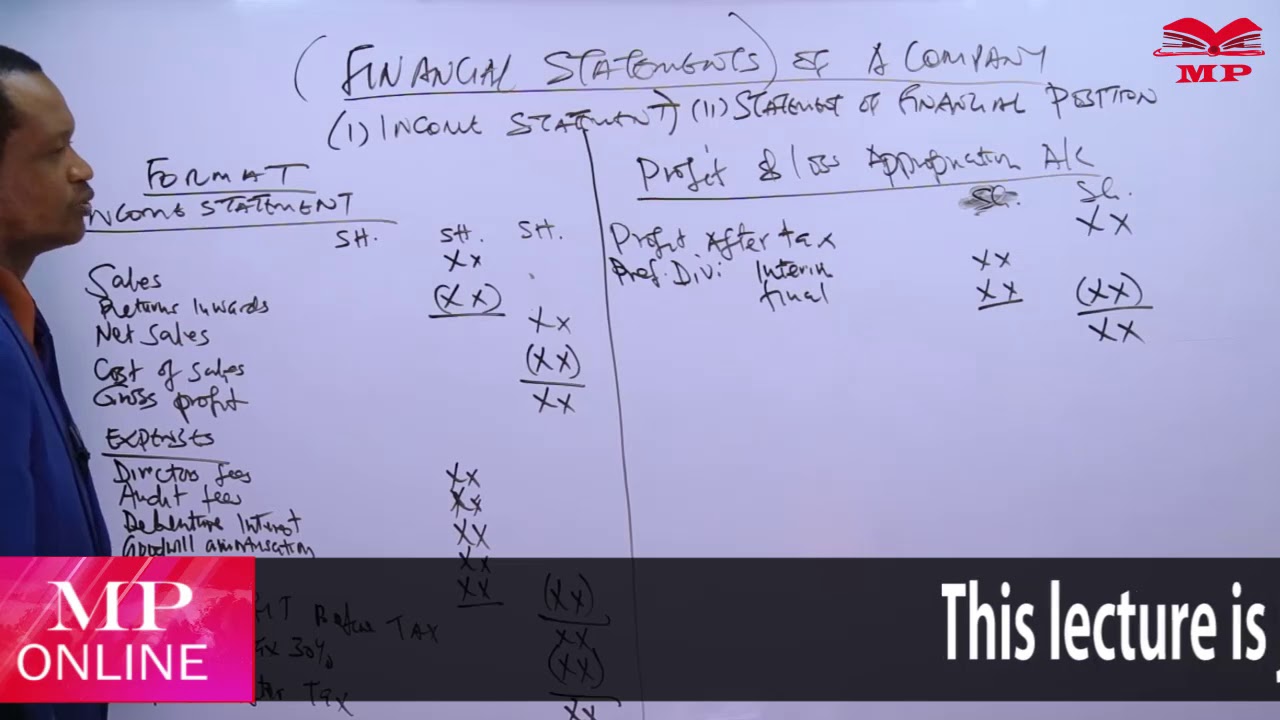 MP
(FINANCIAL STATEMENTS) OF A COMPANY
(I) INCOME STATEMENT) (II) STATEMENT OF FINANCIAL POSITION
FORMAT
INCOME STATEMENT
SH. SH. SH.
Sales XX
Returns Inwards (XX)
Net Sales XX
Cost of Sales (XX)
Gross profit XX
EXPENSES
Directors fees XX
Audit fees XX
Debenture Interest XX
Goodwill amortisation XX
XX (XX)
Before TAX XX
30% (XX)
Tax XX
Profit & loss Appropriation A/C
Sh.
Profit After tax XX
Pref. Div: Interim XX
final XX (XX)
XX
MP
ONLINE
This lecture is